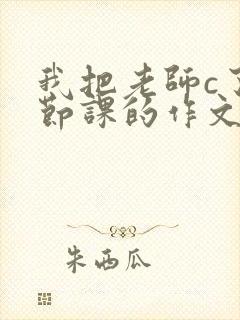 我把老師c了
節課的作文
朱西瓜